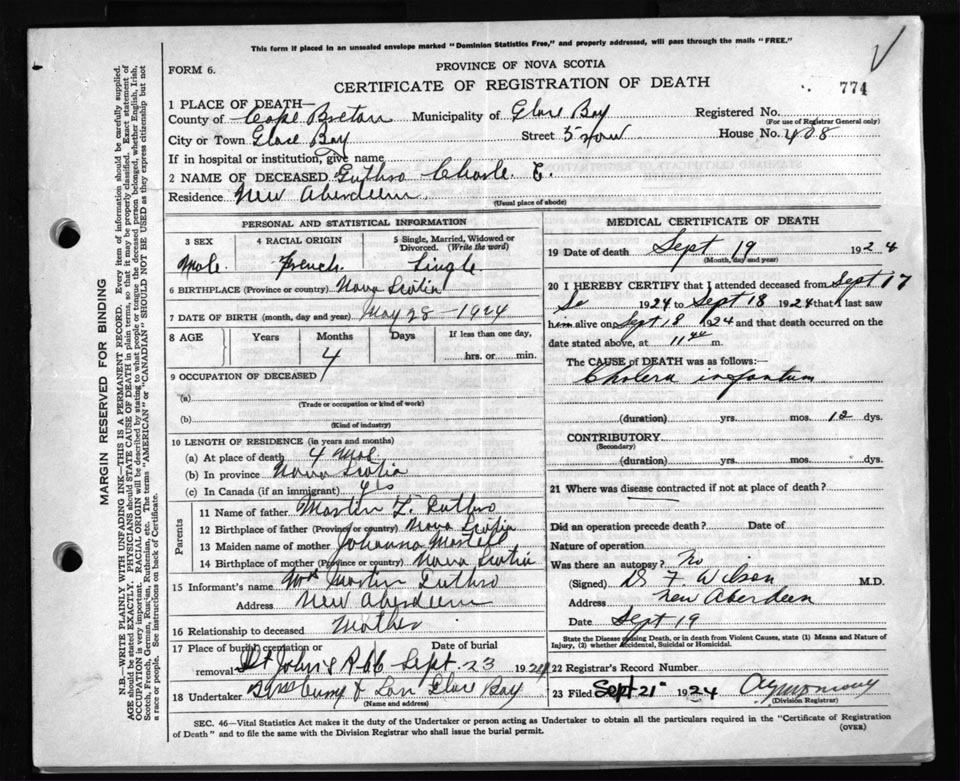 This form if placed in an unsealed envelope marked "Dominion Statistics Free," and properly addressed, will pass through the mails "FREE."
FORM 6.
PROVINCE OF NOVA SCOTIA
CERTIFICATE OF REGISTRATION OF DEATH
774
1 PLACE OF DEATH—
County of Cape Breton Municipality of Glace Bay Registered No.
(For use of Registrar General only)
City or Town Glace Bay Street 5 row House No. 408
If in hospital or institution, give name
2 NAME OF DECEASED Guthro Charle E.
Residence New Aberdeen
(Usual place of abode)
PERSONAL AND STATISTICAL INFORMATION
3 SEX 4 RACIAL ORIGIN 5 Single, Married, Widowed or Divorced. (Write the word)
Male. French. Single
6 BIRTHPLACE (Province or country) Nova Scotia
7 DATE OF BIRTH (month, day and year) May 28 - 1924
8 AGE Years Months Days If less than one day,
4 hrs. or min.
9 OCCUPATION OF DECEASED
(a)
(Trade or occupation or kind of work)
(b)
(Kind of industry)
10 LENGTH OF RESIDENCE (in years and months)
(a) At place of death 4 Mos.
(b) In province Nova Scotia
(c) In Canada (if an immigrant) yes
Parents
11 Name of father Martin Guthro
12 Birthplace of father (Province or country) Nova Scotia
13 Maiden name of mother Johanna Martell
14 Birthplace of mother (Province or country) Nova Scotia
15 Informant's name Mrs Martin Guthro
Address New Aberdeen
16 Relationship to deceased Mother
17 Place of burial, cremation or removal St Johns Date of burial Sept. 23 1924
18 Undertaker & Son Glace Bay
(Name and address)
MEDICAL CERTIFICATE OF DEATH
19 Date of death Sept 19 1924
(Month, day and year)
20 I HEREBY CERTIFY that I attended deceased from Sept 17
1924 to Sept 18 1924 that I last saw
him alive on Sept 18 1924 and that death occurred on the
date stated above, at 11 m.
The CAUSE of DEATH was as follows:—
Cholera infantum
(duration) yrs. mos. 12 dys.
CONTRIBUTORY
(Secondary)
(duration) yrs. mos. dys.
21 Where was disease contracted if not at place of death?
Did an operation precede death? Date of
Nature of operation
Was there an autopsy? No
(Signed) Wilson M.D.
Address New Aberdeen
Sept 19
State the Disease causing Death, or in death from Violent Causes, state (1) Means and Nature of Injury, (2) whether Accidental, Suicidal or Homicidal.
22 Registrar's Record Number
23 Filed Sept 21 1924
(Division Registrar)
SEC. 46—Vital Statistics Act makes it the duty of the Undertaker or person acting as Undertaker to obtain all the particulars required in the "Certificate of Registration
of Death" and to file the same with the Division Registrar who shall issue the burial permit.
(OVER)
MARGIN RESERVED FOR BINDING
N.B.—WRITE PLAINLY WITH UNFADING INK—THIS IS A PERMANENT RECORD. Every item of information should be carefully supplied.
AGE should be stated EXACTLY. PHYSICIANS should STATE CAUSE OF DEATH in plain terms, so that it may be properly classified. Exact statement of
OCCUPATION is very important. RACIAL ORIGIN will be described by stating to what people or tongue the deceased person belonged, whether English, Irish,
Scotch, French, German, Russian, Ruthenian, etc. The terms "AMERICAN" or "CANADIAN" SHOULD NOT BE USED as they express citizenship but not
a race or people. See instructions on back of Certificate.